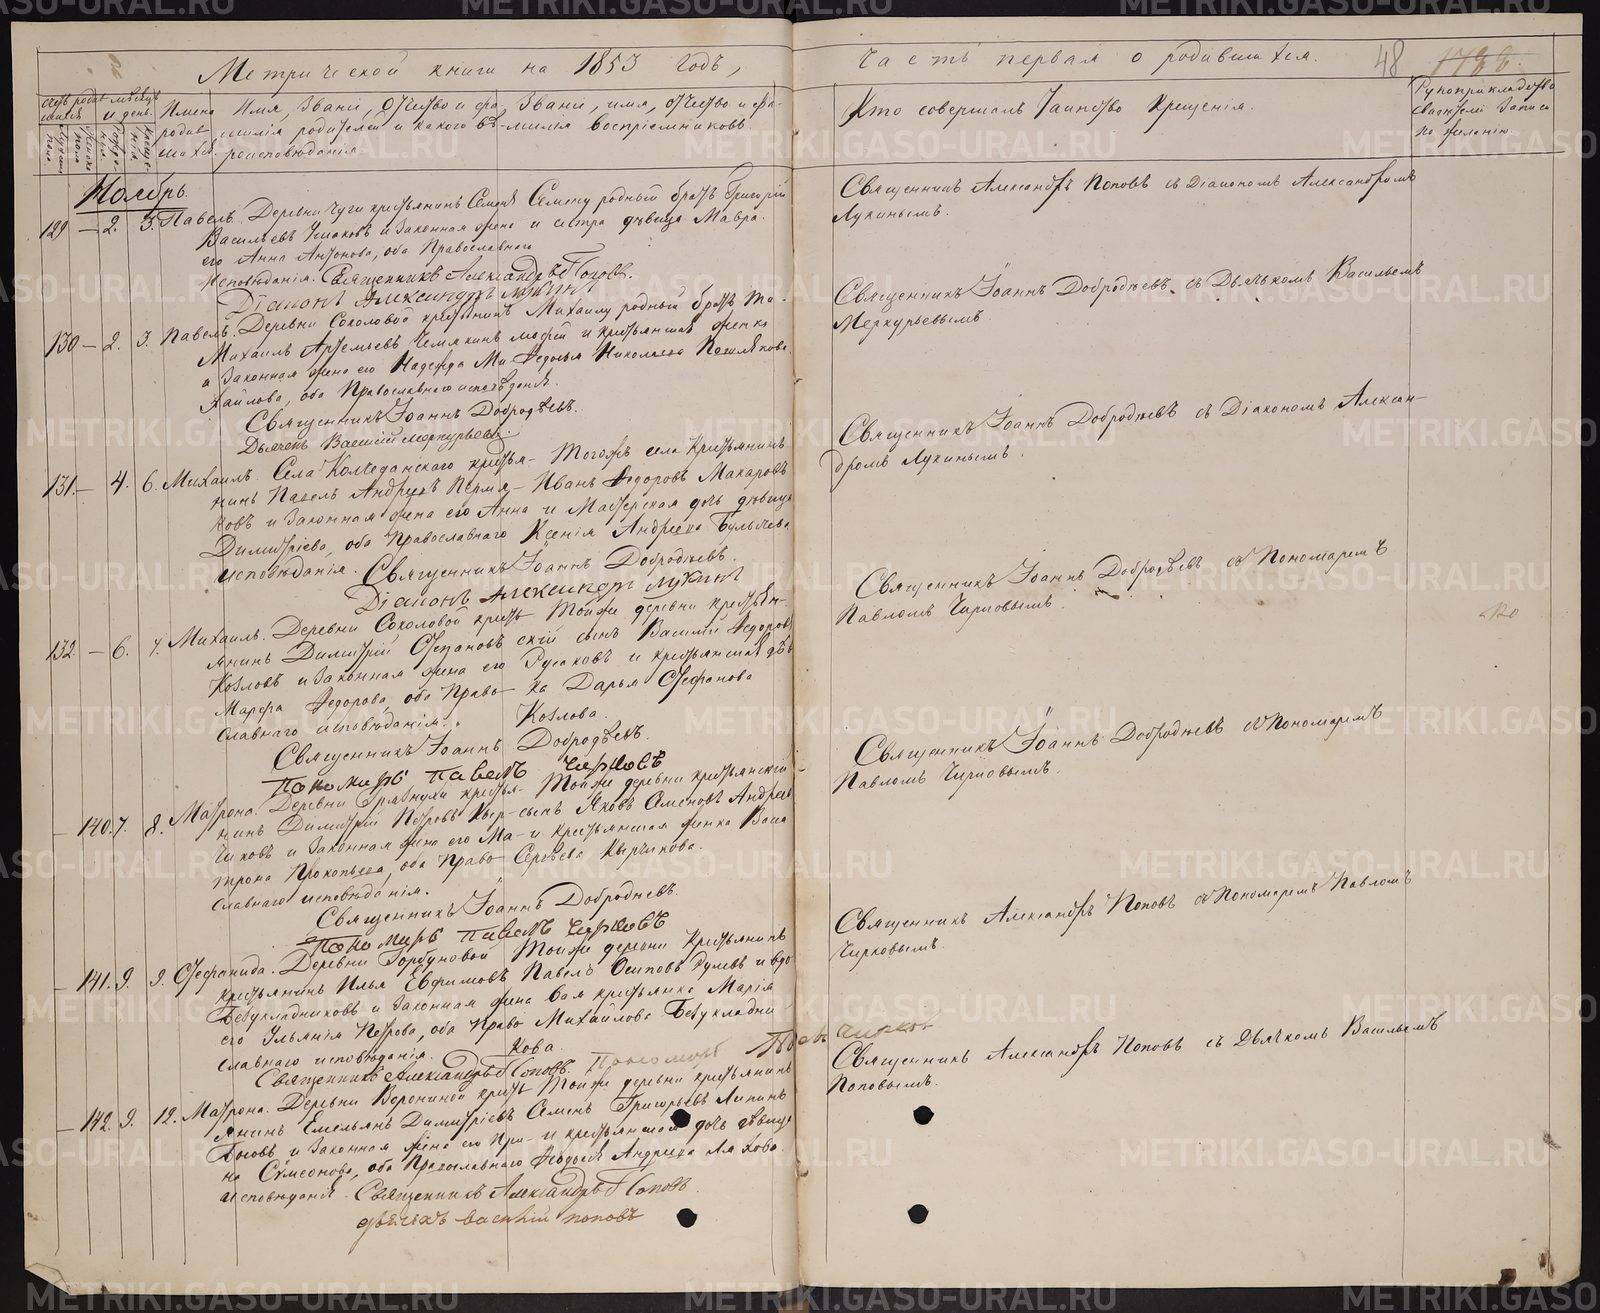 Метрической книги на 1853 годъ,
Часть первая о родившихся.
48
Имена родившихся.
Имя, Званіе, Отчество и фамилія родителей и какого вѣроисповѣданія.
Званіе, имя, отчество и фамилія воспріемниковъ.
Кто совершалъ Таинство Крещенія.
Рукоприкладство свидѣтелей записи по желанію
Ноябрь
129 — 2. 3. Павелъ. Деревни
крестьянинъ Семенъ
Васильевъ и законная жена
его Анна Антонова, оба Православнаго
Исповѣданія.
Семену родный братъ Григорій
и сестра дѣвица Мавра.
Священникъ Александръ Поповъ.
Діаконъ Александръ Лукинъ
Священникъ Александръ Поповъ съ Діакономъ Александромъ
Лукинымъ.
130 — 2. 3. Павелъ. Деревни Соколовой
Михаилъ Артемьевъ
а законная жена его Надежда Ми-
хайлова, оба Православнаго исповѣданія.
Михаилу родный братъ Ти-
мофей и крестьянская женка
Федосья Николаева
Священникъ Іоаннъ Добродѣевъ.
Дьячекъ Василій Меркурьевъ.
Священникъ Іоаннъ Добродѣевъ съ Дьячкомъ Васильемъ
Меркурьевымъ
131 — 4. 6. Михаилъ. Села Колчеданскаго крестья-
нинъ Павелъ Андреевъ Пермя-
ковъ и законная жена его Анна
Димитріева, оба Православнаго
исповѣданія.
Тогожъ села Крестьянинъ
Иванъ Федоровъ Макаровъ
и Мастерская дочь дѣвица
Ксенія Андреева Булычева
Священникъ Іоаннъ Добродѣевъ.
Діаконъ Александръ Лукинъ
Священникъ Іоаннъ Добродѣевъ съ Діакономъ Алексан-
дромъ Лукинымъ.
132 — 6. 7. Михаилъ. Деревни Соколовой кресть-
янинъ Димитрій Степановъ
Козловъ и законная жена его
Марфа Федорова, оба Право-
славнаго исповѣданія.
Тойже деревни крестьян-
скій сынъ Василій Федоровъ
Русаковъ и крестьянская дѣв-
ка Дарья Стефанова
Козлова.
Священникъ Іоаннъ Добродѣевъ.
Пономарь Павелъ Чирковъ
Священникъ Іоаннъ Добродѣевъ съ Пономаремъ
Павломъ Чирковымъ.
— 140. 7. 8. Матрона. Деревни Грязнухи крестья-
нинъ Димитрій Петровъ Кыр-
чиковъ и законная жена его Ма-
трона Прокопьева, оба Право-
славнаго исповѣданія.
Тойже деревни крестьянскій
сынъ Яковъ Семеновъ Андреевъ
и крестьянская женка Васса
Сергѣева Кырчикова.
Священникъ Іоаннъ Добродѣевъ.
Пономарь Павелъ Чирковъ
Священникъ Іоаннъ Добродѣевъ съ Пономаремъ
Павломъ Чирковымъ.
— 141. 9. 9. Стефанида. Деревни Горбуновой
крестьянинъ Илья Евфимовъ
Безукладниковъ и законная жена
его Ульянія Петрова, оба Право-
славнаго исповѣданія.
Тойже деревни Крестьянинъ
Павелъ Осиповъ Рулевъ и вдо-
вая крестьянка Марія
Михайлова Безукладни-
кова.
Священникъ Александръ Поповъ. Пономарь Павелъ Чирковъ
Священникъ Александръ Поповъ съ Пономаремъ Павломъ
Чирковымъ.
— 142. 9. 12. Матрона. Деревни Воронина кресть-
янинъ Емельянъ Димитріевъ
и законная жена его Ири-
на Симеонова, оба Православнаго
исповѣданія.
Тойже деревни крестьянинъ
Семенъ Григорьевъ
и крестьянская дочь дѣвица
Федосья Андреева
Священникъ Александръ Поповъ.
дьячекъ Василій Поповъ
Священникъ Александръ Поповъ съ Дьячкомъ Васильемъ
Поповымъ.
METRIKI.GASO-URAL.RU